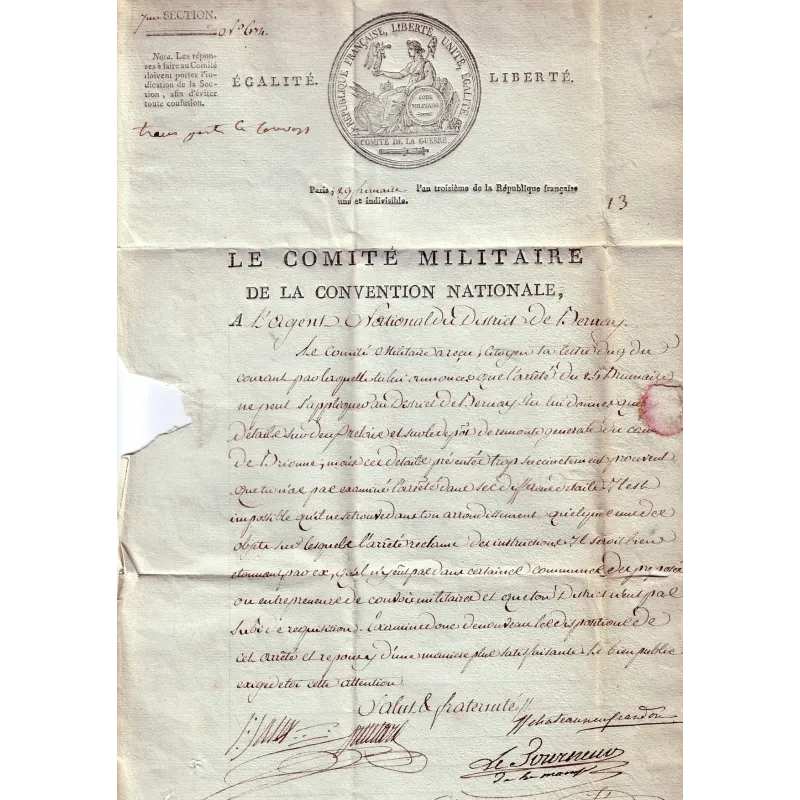 7me SECTION.
N.° 674.
Nota. Les répon-
ses à faire au Comité
doivent porter l'in-
dication de la Sec-
tion, afin d'éviter
toute confusion.
RÉPUBLIQUE FRANÇAISE, LIBERTÉ, UNITÉ, ÉGALITÉ.
CODE
MILITAIRE
COMITÉ DE LA GUERRE
ÉGALITÉ. LIBERTÉ.
transport convoys
Paris, 29 frimaire l'an troisième de la République française
une et indivisible.
13
LE COMITÉ MILITAIRE
DE LA CONVENTION NATIONALE,
A L'Agent National du District de Bernay.
Le Comité Militaire a reçu, Citoyen ta lettre du 9 du
courant par laquelle tu lui annonces que l'arrêté du 25 Brumaire
ne peut s'appliquer au District de Bernay. Tu lui donnes quelques
détails sur deux et sur le dépôt de remonte générale du
de Brionne, mais ces détails présentés trop succinctement prouvent
que tu n'as pas examiné l'arrêté dans ses différens détails. Il est
impossible qu'il ne se trouve dans ton arrondissement quelques uns des
objets sur lesquels l'arrêté reclame des instructions. Il seroit bien
etonnant par ex. qu'il n'y eut pas dans certaines communes des préposés
ou entrepreneurs de convois militaires et que ton District n'eut pas
subi de requisition. Examine donc de nouveau les dispositions de
cet arrêté et reponds y d'une maniere plus satisfaisante. Le bien public
exige de toi cette attention.
Salut & fraternité
h chateauneufrandon
Le Tourneur
de la manche